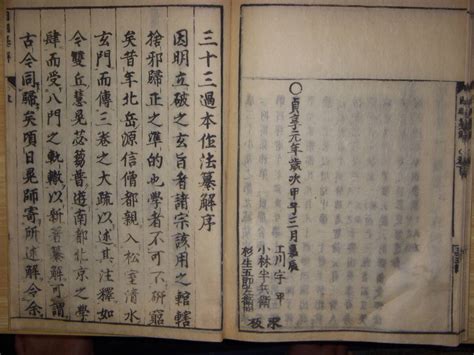 〇貞享元年歳次甲子三月嘉辰
小林半兵衛
杉生五郎左衛門
板
三十三過本作法纂解序
因明立破之玄旨者諸宗該用之輨轄
捨邪歸正之準的也學者不可不研窮
矣昔年北岳源信僧都親入松室清水
玄門而傳三卷之大疏以述其注釋如
令雙丘慧晃苾蒭普遊南都北京之學
肆而受八門之軌轍以新著纂解可謂
古今同歸矣頃日晃師寄所述解令余